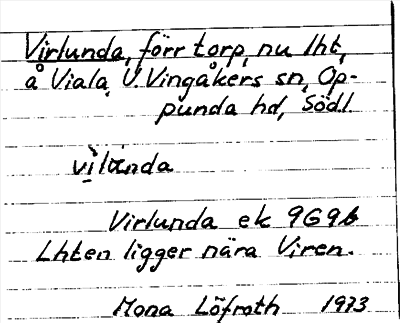 Virlunda, förr torp, nu lht,
å Viala, V. Vingåkers sn, Op-
punda hd, Södl.
Virlunda ek 9G9b
Lhten ligger nära Viren.
Mona Löfroth 1973